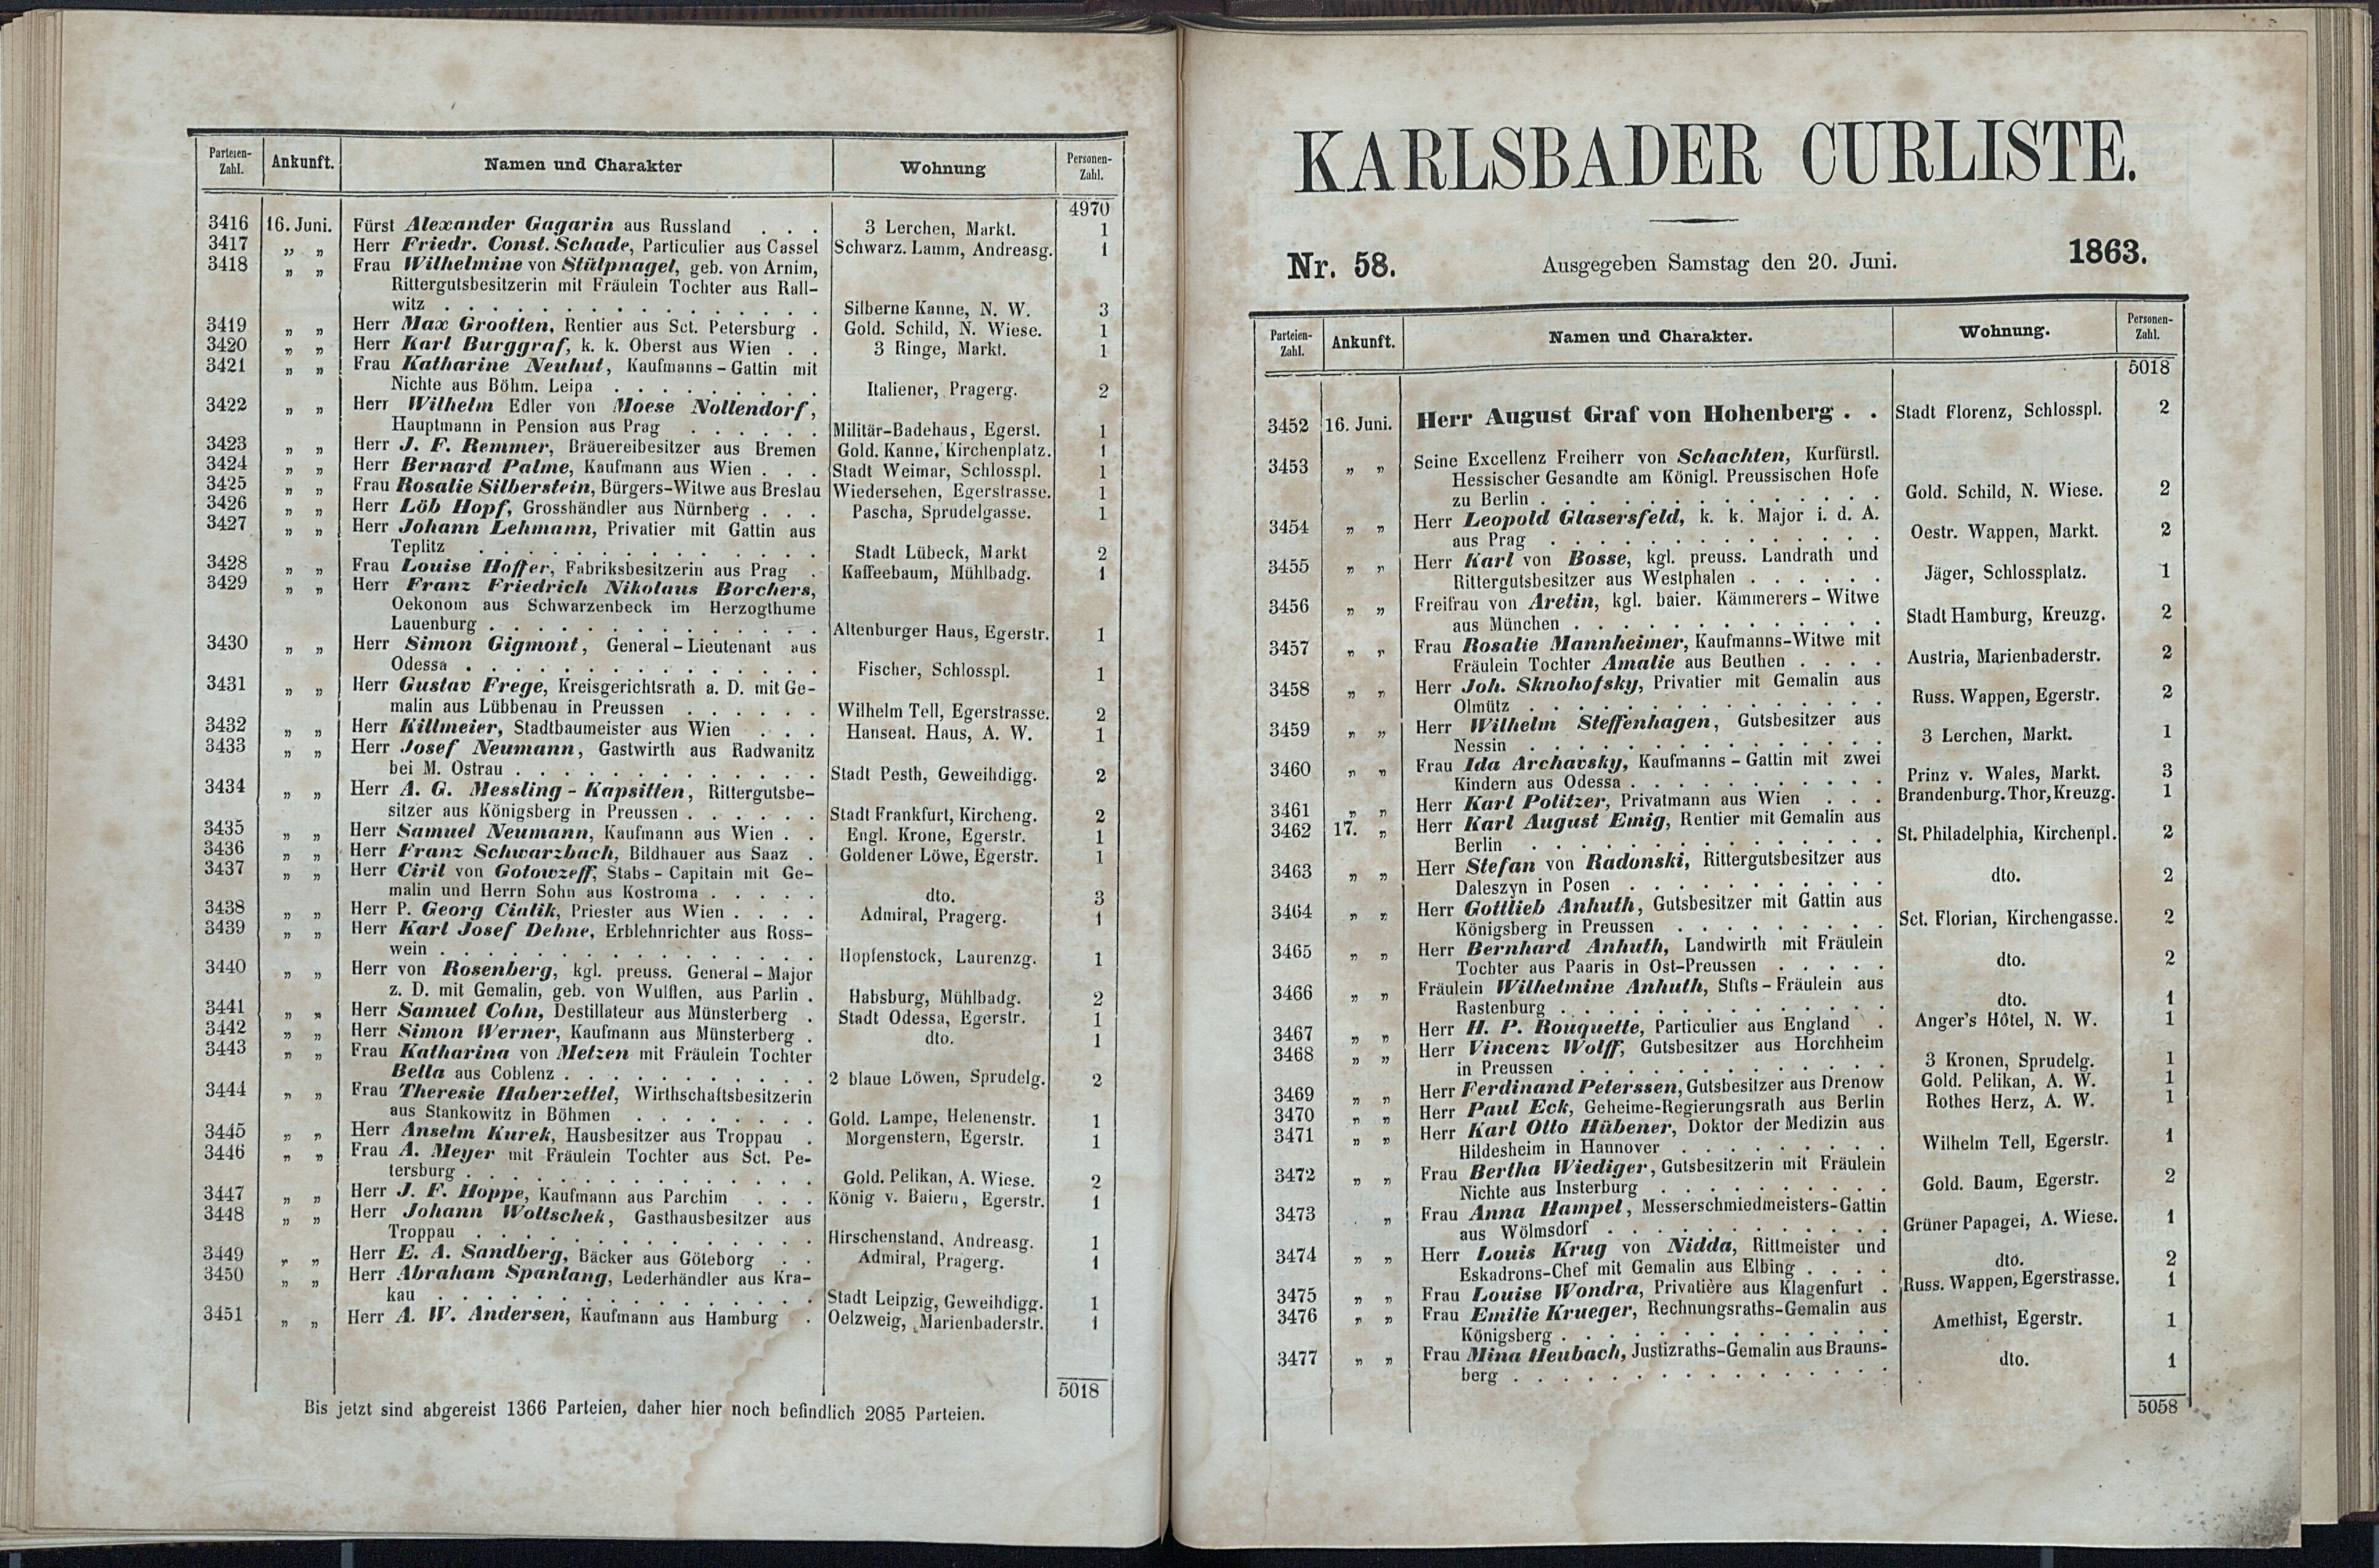 Parteien-Zahl. Ankunft. Namen und Charakter Wohnung Personen-Zahl.
4970
3416 16. Juni. Fürst Alexander Gagarin aus Russland . . . 3 Lerchen, Markt. 1
3417 „ „ Herr Friedr. Const. Schade, Particulier aus Cassel Schwarz. Lamm, Andreasg. 1
3418 „ „ Frau Wilhelmine von Stülpnagel, geb. von Arnim,
Rittergutsbesitzerin mit Fräulein Tochter aus Rall-
witz . . . Silberne Kanne, N. W. 3
3419 „ „ Herr Max Grootten, Rentier aus Sct. Petersburg . Gold. Schild, N. Wiese. 1
3420 „ „ Herr Karl Burggraf, k. k. Oberst aus Wien . . 3 Ringe, Markt. 1
3421 „ „ Frau Katharine Neuhut, Kaufmanns-Gattin mit
Nichte aus Böhm. Leipa . . . Italiener, Pragerg. 2
3422 „ „ Herr Wilhelm Edler von Moese Nollendorf,
Hauptmann in Pension aus Prag . . . Militär-Badehaus, Egerst. 1
3423 „ „ Herr J. F. Remmer, Bräuereibesitzer aus Bremen Gold. Kanne, Kirchenplatz. 1
3424 „ „ Herr Bernard Palme, Kaufmann aus Wien . . . Stadt Weimar, Schlosspl. 1
3425 „ „ Frau Rosalie Silberstein, Bürgers-Witwe aus Breslau Wiedersehen, Egerstrasse. 1
3426 „ „ Herr Löb Hopf, Grosshändler aus Nürnberg . . . Pascha, Sprudelgasse. 1
3427 „ „ Herr Johann Lehmann, Privatier mit Gattin aus
Teplitz . . . Stadt Lübeck, Markt 2
3428 „ „ Frau Louise Hoffer, Fabriksbesitzerin aus Prag . Kaffeebaum, Mühlbadg. 1
3429 „ „ Herr Franz Friedrich Nikolaus Borchers,
Oekonom aus Schwarzenbeck im Herzogthume
Lauenburg . . . Altenburger Haus, Egerstr. 1
3430 „ „ Herr Simon Gigmont, General-Lieutenant aus
Odessa . . . Fischer, Schlosspl. 1
3431 „ „ Herr Gustav Frege, Kreisgerichtsrath a. D. mit Ge-
malin aus Lübbenau in Preussen . . . Wilhelm Tell, Egerstrasse. 2
3432 „ „ Herr Killmeier, Stadtbaumeister aus Wien . . . Hanseat. Haus, A. W. 1
3433 „ „ Herr Josef Neumann, Gastwirth aus Radwanitz
bei M. Ostrau . . . Stadt Pesth, Geweihdigg. 2
3434 „ „ Herr A. G. Messling-Kapsitten, Rittergutsbe-
sitzer aus Königsberg in Preussen . . . Stadt Frankfurt, Kircheng. 2
3435 „ „ Herr Samuel Neumann, Kaufmann aus Wien . . Engl. Krone, Egerstr. 1
3436 „ „ Herr Franz Schwarzbach, Bildhauer aus Saaz . Goldener Löwe, Egerstr. 1
3437 „ „ Herr Ciril von Gotowzeff, Stabs-Capitain mit Ge-
malin und Herrn Sohn aus Kostroma . . . dto. 3
3438 „ „ Herr P. Georg Cinlik, Priester aus Wien . . . Admiral, Pragerg. 1
3439 „ „ Herr Karl Josef Dehne, Erblehnrichter aus Ross-
wein . . . Hopfenstock, Laurenzg. 1
3440 „ „ Herr von Rosenberg, kgl. preuss. General-Major
z. D. mit Gemalin, geb. von Wulften, aus Parlin . Habsburg, Mühlbadg. 2
3441 „ „ Herr Samuel Cohn, Destillateur aus Münsterberg . Stadt Odessa, Egerstr. 1
3442 „ „ Herr Simon Werner, Kaufmann aus Münsterberg . dto. 1
3443 „ „ Frau Katharina von Metzen mit Fräulein Tochter
Bella aus Coblenz . . . 2 blaue Löwen, Sprudelg. 2
3444 „ „ Frau Theresie Haberzettel, Wirthschaftsbesitzerin
aus Stankowitz in Böhmen . . . Gold. Lampe, Helenenstr. 1
3445 „ „ Herr Anselm Kurek, Hausbesitzer aus Troppau . Morgenstern, Egerstr. 1
3446 „ „ Frau A. Meyer mit Fräulein Tochter aus Sct. Pe-
tersburg . . . Gold. Pelikan, A. Wiese. 2
3447 „ „ Herr J. F. Hoppe, Kaufmann aus Parchim . . . König v. Baiern, Egerstr. 1
3448 „ „ Herr Johann Woltschek, Gasthausbesitzer aus
Troppau . . . Hirschenstand, Andreasg. 1
3449 „ „ Herr E. A. Sandberg, Bäcker aus Göteborg . . Admiral, Pragerg. 1
3450 „ „ Herr Abraham Spanlang, Lederhändler aus Kra-
kau . . . Stadt Leipzig, Geweihdigg. 1
3451 „ „ Herr A. W. Andersen, Kaufmann aus Hamburg . Oelzweig, Marienbaderstr. 1
5018
Bis jetzt sind abgereist 1366 Parteien, daher hier noch befindlich 2085 Parteien.
KARLSBADER CURLISTE.
Nr. 58. Ausgegeben Samstag den 20. Juni. 1863.
Parteien-Zahl. Ankunft. Namen und Charakter. Wohnung. Personen-Zahl.
5018
3452 16. Juni. Herr August Graf von Hohenberg . . Stadt Florenz, Schlosspl. 2
3453 „ „ Seine Excellenz Freiherr von Schachten, Kurfürstl.
Hessischer Gesandte am Königl. Preussischen Hofe
zu Berlin . . . Gold. Schild, N. Wiese. 2
3454 „ „ Herr Leopold Glasersfeld, k. k. Major i. d. A.
aus Prag . . . Oestr. Wappen, Markt. 2
3455 „ „ Herr Karl von Bosse, kgl. preuss. Landrath und
Rittergutsbesitzer aus Westphalen . . . Jäger, Schlossplatz. 1
3456 „ „ Freifrau von Aretin, kgl. baier. Kämmerers-Witwe
aus München . . . Stadt Hamburg, Kreuzg. 2
3457 „ „ Frau Rosalie Mannheimer, Kaufmanns-Witwe mit
Fräulein Tochter Amalie aus Beuthen . . . Austria, Marienbaderstr. 2
3458 „ „ Herr Joh. Sknohofsky, Privatier mit Gemalin aus
Olmütz . . . Russ. Wappen, Egerstr. 2
3459 „ „ Herr Wilhelm Steffenhagen, Gutsbesitzer aus
Nessin . . . 3 Lerchen, Markt. 1
3460 „ „ Frau Ida Archavsky, Kaufmanns-Gattin mit zwei
Kindern aus Odessa . . . Prinz v. Wales, Markt. 3
3461 „ „ Herr Karl Politzer, Privatmann aus Wien . . . Brandenburg. Thor, Kreuzg. 1
3462 17. „ Herr Karl August Emig, Rentier mit Gemalin aus
Berlin . . . St. Philadelphia, Kirchenpl. 2
3463 „ „ Herr Stefan von Radonski, Rittergutsbesitzer aus
Daleszyn in Posen . . . dto. 2
3464 „ „ Herr Gottlieb Anhuth, Gutsbesitzer mit Gattin aus
Königsberg in Preussen . . . Sct. Florian, Kirchengasse. 2
3465 „ „ Herr Bernhard Anhuth, Landwirth mit Fräulein
Tochter aus Paaris in Ost-Preussen . . . dto. 2
3466 „ „ Fräulein Wilhelmine Anhuth, Stifts-Fräulein aus
Rastenburg . . . dto. 1
3467 „ „ Herr H. P. Rouquette, Particulier aus England . Anger's Hôtel, N. W. 1
3468 „ „ Herr Vincenz Wolff, Gutsbesitzer aus Horchheim
in Preussen . . . 3 Kronen, Sprudelg. 1
3469 „ „ Herr Ferdinand Peterssen, Gutsbesitzer aus Drenow Gold. Pelikan, A. W. 1
3470 „ „ Herr Paul Eck, Geheime-Regierungsrath aus Berlin Rothes Herz, A. W. 1
3471 „ „ Herr Karl Otto Hübener, Doktor der Medizin aus
Hildesheim in Hannover . . . Wilhelm Tell, Egerstr. 1
3472 „ „ Frau Bertha Wiediger, Gutsbesitzerin mit Fräulein
Nichte aus Insterburg . . . Gold. Baum, Egerstr. 2
3473 „ Frau Anna Hampel, Messerschmiedmeisters-Gattin
aus Wölmsdorf . . . Grüner Papagei, A. Wiese. 1
3474 „ „ Herr Louis Krug von Nidda, Rittmeister und
Eskadrons-Chef mit Gemalin aus Elbing . . . dto. 2
3475 „ „ Frau Louise Wondra, Privatière aus Klagenfurt . Russ. Wappen, Egerstrasse. 1
3476 „ „ Frau Emilie Krueger, Rechnungsraths-Gemalin aus
Königsberg . . . Amethist, Egerstr. 1
3477 „ „ Frau Mina Heubach, Justizraths-Gemalin aus Brauns-
berg . . . dto. 1
5058